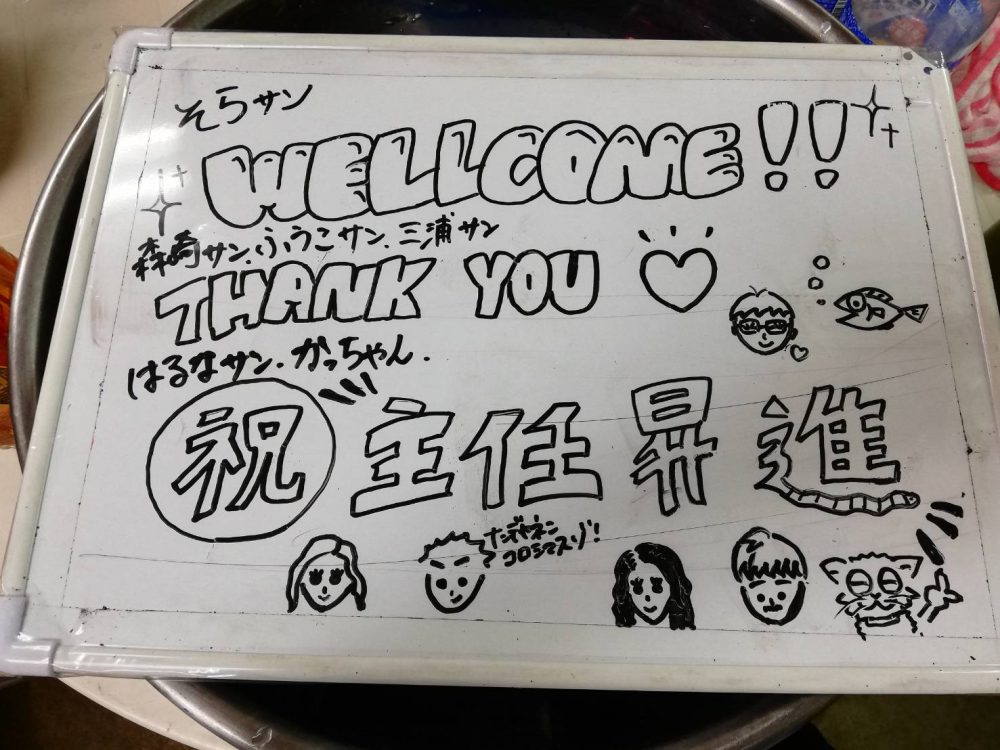 そらサン
WELLCOME!!
森崎サン、ふうこサン、三浦サン
THANK YOU
はるなサン、かっちゃん.
祝 主任昇進
ナンデヤネン
コロシマスゾ!